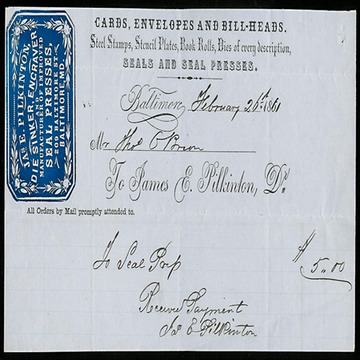 CARDS, ENVELOPES AND BILL-HEADS.
Steel Stamps, Stencil Plates, Book Rolls, Dies of every description,
SEALS AND SEAL PRESSES.
JAS. E. PILKINTON,
DIE SINKER, ENGRAVER
MANUFACTURER OF IMPROVED
SEAL PRESSES,
BALTIMORE, MD.
Baltimore, February 26th 1861
Mr Thos O'Brien
To James E. Pilkinton, Dr.
All Orders by Mail promptly attended to.
To Seal Press $5.00
Received Payment
Jas E Pilkinton